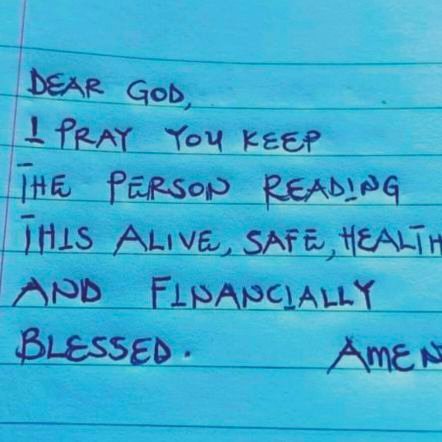 DEAR GOD,
I PRAY YOU KEEP
THE PERSON READING
THIS ALIVE, SAFE, HEALTH
AND FINANCIALLY
BLESSED. AMEN